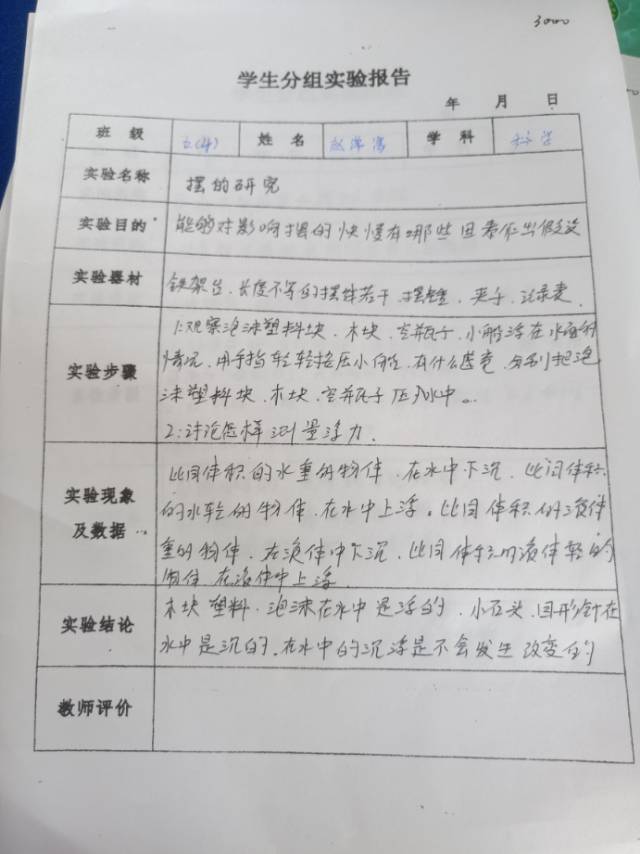 3000
学生分组实验报告
年 月 日
班级 五(4) 姓名 学科 科学
实验名称 摆的研究
实验目的 能够对影响摆的快慢有哪些因素作出假设
实验器材 铁架台、长度不等的摆线若干、摆锤、夹子、记录表
实验步骤
1:观察泡沫塑料块、木块、空瓶子、小船浮在水面的
情况,用手指轻轻按压小船,有什么感觉,分别把泡
沫塑料块、木块、空瓶子压入水中。
2:讨论怎样测量浮力.
实验现象及数据
比同体积的水重的物体、在水中下沉、比同体积
的水轻的物体、在水中上浮。比同体积的液体
重的物体、在液体中下沉、比同体积的液体轻的
物体、在液体中上浮
实验结论
木块塑料、泡沫在水中是浮的、小石头、回形针在
水中是沉的、在水中的沉浮是不会发生改变的
教师评价